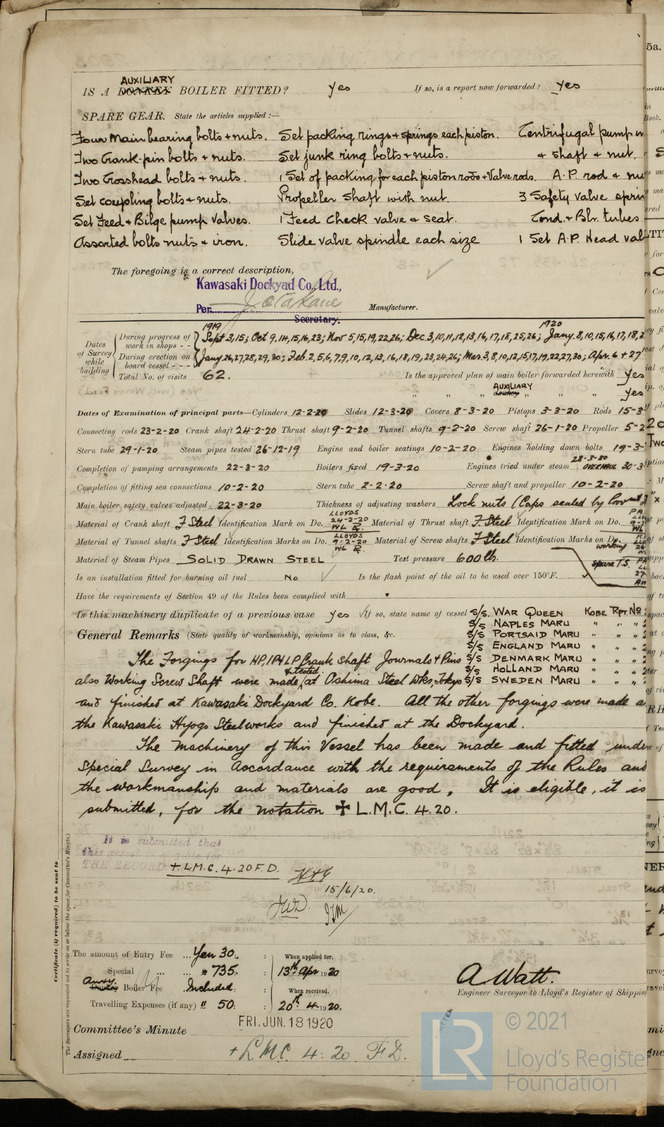 AUXILIARY
IS A DONKEY BOILER FITTED? Yes If so, is a report now forwarded? Yes
SPARE GEAR. State the articles supplied:—
Four Main bearing bolts & nuts. Set packing rings & springs each piston. Centrifugal pump
Two Crank-pin bolts & nuts. Set junk ring bolts & nuts. & shaft & nut.
Two Crosshead bolts & nuts. 1 Set of packing for each piston rods & Valve rods. A.P. rod &
Set coupling bolts & nuts. Propeller shaft with nut. 3 Safety valve
Set Feed & Bilge pump valves. 1 Feed Check valve & seat. Cond. & Blr. tubes
Assorted bolts nuts & iron. Slide valve spindle each size 1 Set A.P. Head
The foregoing is a correct description,
Kawasaki Dockyad Co., Ltd.,
Per Manufacturer.
Secretary.
1919 1920
Dates of Survey while building
During progress of work in shops - - Sept 3,15; Oct 9,14,15,16,23; Nov 5,15,19,22,26; Dec 3,10,11,12,13,16,17,18,25,26; Jany. 8,10,15,16,17,18,
During erection on board vessel - - - Jany 26,27,25,29,30; Feb. 2,5,6,7,9,10,12,13,16,18,19,23,24,26; Mar. 3,8,10,12,15,17,19,22,27,30; Apr. 6 & 27
Total No. of visits 62. Is the approved plan of main boiler forwarded herewith Yes
AUXILIARY
" " " donkey " " " Yes
Dates of Examination of principal parts—Cylinders 12-2-20 Slides 12-3-20 Covers 8-3-20 Pistons 3-3-20 Rods 15-3-
Connecting rods 23-2-20 Crank shaft 24-2-20 Thrust shaft 9-2-20 Tunnel shafts 9-2-20 Screw shaft 26-1-20 Propeller 5-2
Stern tube 29-1-20 Steam pipes tested 26-12-19 Engine and boiler seatings 10-2-20 Engines holding down bolts 19-3-
28-3-20
Completion of pumping arrangements 22-3-20 Boilers fixed 19-3-20 Engines tried under steam 30-3
Completion of fitting sea connections 10-2-20 Stern tube 2-2-20 Screw shaft and propeller 10-2-20
Main boiler safety valves adjusted 22-3-20 Thickness of adjusting washers Lock nuts (Caps sealed by
LLOYDS 24-2-20
Material of Crank shaft F Steel Identification Mark on Do. Material of Thrust shaft F Steel Identification Mark on Do.
LLOYDS 9-2-20
Material of Tunnel shafts F Steel Identification Marks on Do. Material of Screw shafts F Steel Identification Marks on Do.
working
Material of Steam Pipes SOLID DRAWN STEEL Test pressure 600 lb. Spare T.S.
Is an installation fitted for burning oil fuel No Is the flash point of the oil to be used over 150°F.
Have the requirements of Section 49 of the Rules been complied with
Is this machinery duplicate of a previous case Yes If so, state name of vessel S/S WAR QUEEN KOBE Rpt No
S/S NAPLES MARU " " "
General Remarks (State quality of workmanship, opinions as to class, &c. S/S PORTSAID MARU " " "
S/S ENGLAND MARU " " "
The Forgings for HP, IP & LP Crank Shaft Journals & Pins S/S DENMARK MARU " " "
S/S HOLLAND MARU " " "
also Working Screw Shaft were made, & tested at Oshima Steel Wks, Tokyo S/S SWEDEN MARU " " "
and finished at Kawasaki Dockyard Co. Kobe. All the other forgings were made
the Kawasaki Hyogo Steelworks and finished at the Dockyard.
The Machinery of this Vessel has been made and fitted under
Special Survey in accordance with the requirements of the Rules and
the workmanship and materials are good. It is eligible, it is
submitted, for the notation ✠ L.M.C. 4.20.
It is submitted that
this vessel is eligible for
THE RECORD + L.M.C. 4.20 F.D.
15/6/20.
Certificate (if required) to be sent to
The amount of Entry Fee ... Yen 30. : When applied for.
Special ... ... " 735. : 13th Apr 1920
Boiler Fee ... Included. : When received.
Travelling Expenses (if any) " 50. : 20th 4 1920.
A Watt.
Engineer Surveyor to Lloyd's Register of Shipping
Committee's Minute FRI. JUN. 18 1920
Assigned + L.M.C. 4.20 F.D.
LR
© 2021
Lloyd's Register
Foundation